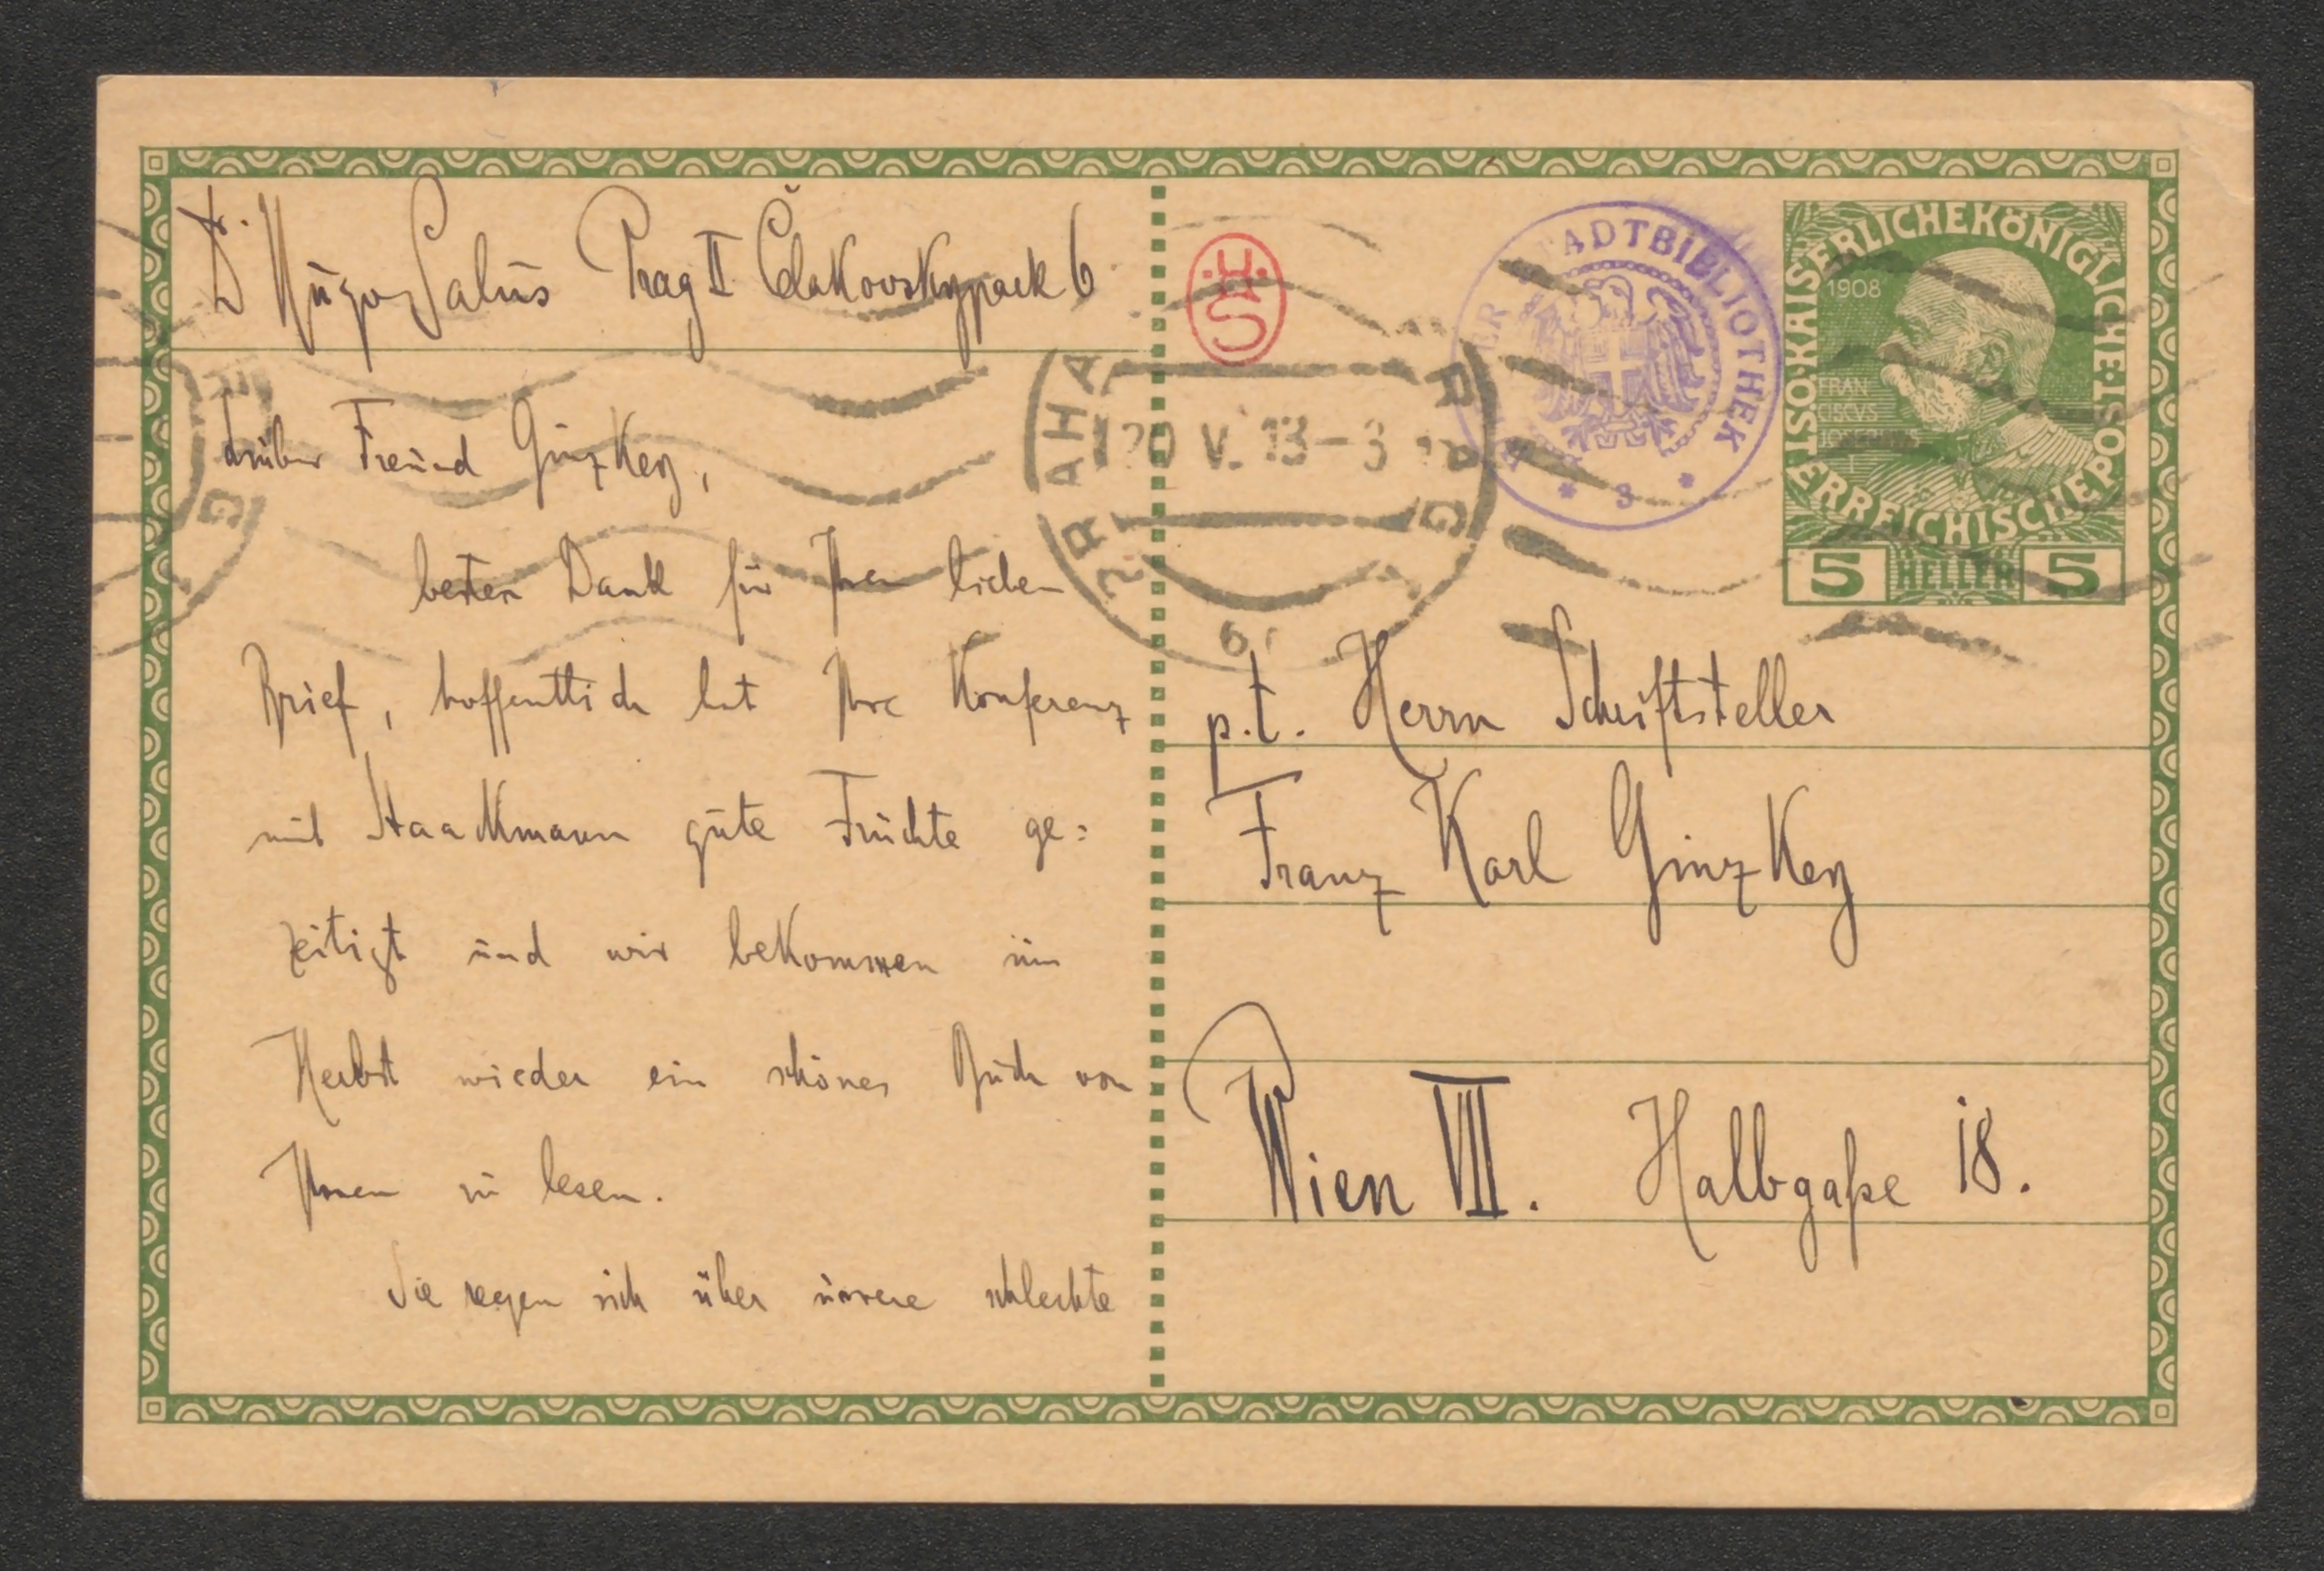 Dr. Hugo Salus Prag II Čelakovskypark 6
Lieber Freund Ginzkey,
besten Dank für Ihren lieben
Brief, hoffentlich hat Ihre Konferenz
mit Staackmann gute Früchte ge=
zeitigt und wir bekommen im
Herbst wieder ein schönes Buch von
Ihnen zu lesen.
Sie regen sich über unsere schlechte
H.S
STADTBIBLIOTHEK
* 3 *
PRAHA
20 V. 13-3
PRAG
KAISERLICHEKÖNIGLICHE
ÖSTERREICHISCHEPOST
1908
FRAN
CISCVS
IOSEPHVS
I
5 HELLER 5
p.t. Herrn Schriftsteller
Franz Karl Ginzkey
Wien VII. Halbgaße 18.